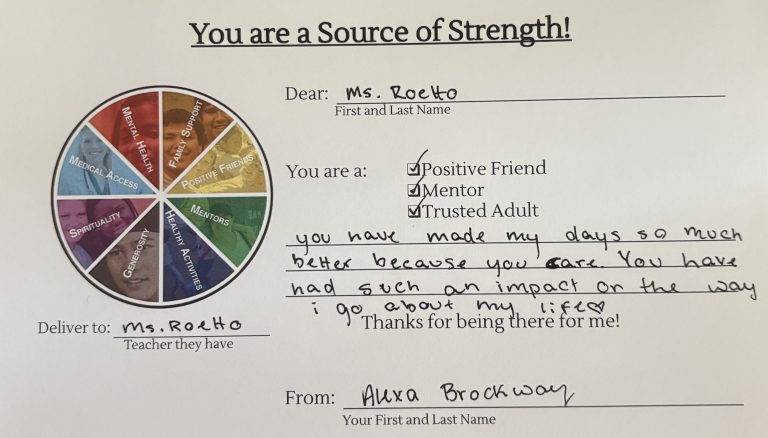 You are a Source of Strength!
Dear: Ms. Roetto
First and Last Name
MENTAL HEALTH
FAMILY SUPPORT
POSITIVE FRIENDS
MENTORS
HEALTHY ACTIVITIES
GENEROSITY
SPIRITUALITY
MEDICAL ACCESS
You are a:
Positive Friend
Mentor
Trusted Adult
you have made my days so much
better because you care. You have
had such an impact on the way
i go about my life♡
Thanks for being there for me!
Deliver to: Ms. Roetto
Teacher they have
From: Alexa Brockway
Your First and Last Name